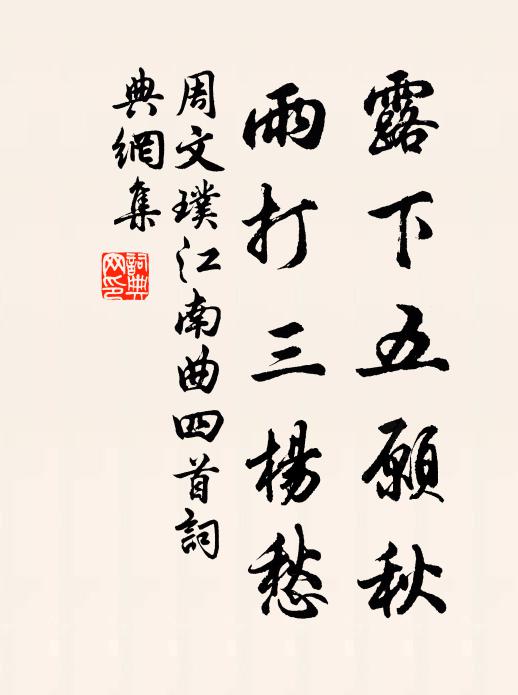 露下五願秋
雨打三楊愁
周文璞江南曲四首詞
典網集
詞典网印